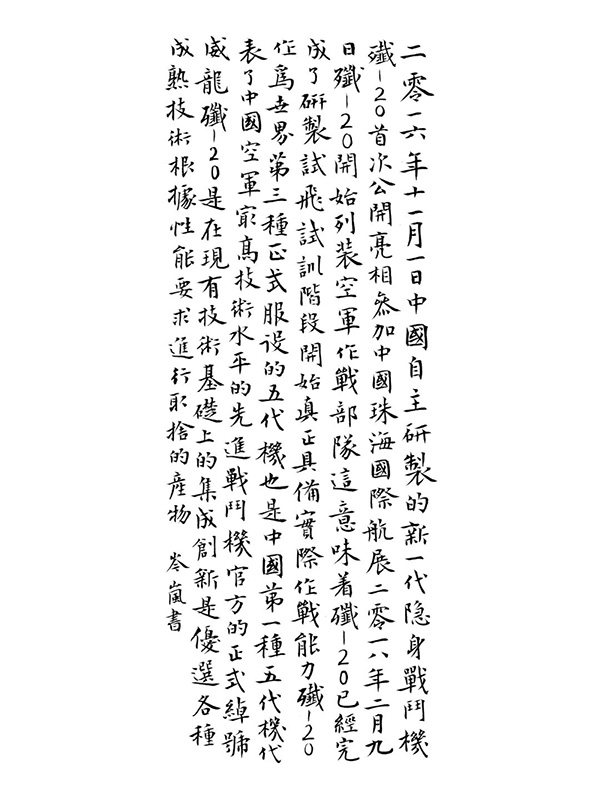 二零一六年十一月一日中國自主研製的新一代隐身戰鬥機
殲-20首次公開亮相參加中國珠海國際航展二零一八年二月九
日殲-20開始列装空軍作戰部隊這意味着殲-20已經完
成了研製試飛試訓階段開始真正具備實際作戰能力殲-20
作爲世界第三種正式服设的五代機也是中國第一種五代機代
表了中國空軍最高技術水平的先進戰鬥機官方的正式綽號
威龍殲-20是在現有技術基礎上的集成創新是優選各種
成熟技術根據性能要求進行取捨的產物 岑嵐書